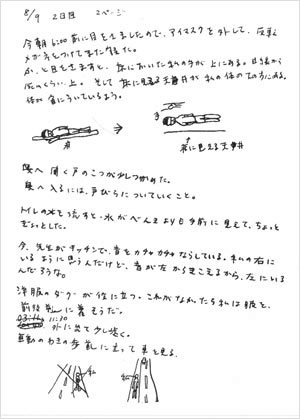 8/9 2日目 2ページ
今朝6:00前に目をさましたので、アイマスクを外して、反転
メガネをつけてまた寝た。
ふと目をさますと、床においたまくの手が上にある。目线から
床のくらい上。そして床に見える天井がわたしの体の下の方にある。
体が宙にういているよう。
床に見える天井
奥へ開く戸のこつが少しつかめた。
奥へ入るには、戸びらについていくこと。
トイレの水を流すと、水がべんきより手前に見えて、ちょっと
ぎょっとした。
今、先生がキッチンで、音をカチャカチャならしている。私の右に
いるように思うんだけど、音が左からきこえるから、左にいる
んだろうな。
洋服のタグが役に立つ。これがなれたら私は服を、
前後逆に着そうだ。
11:10
外に出て少し歩く。
車を見る。
私
私